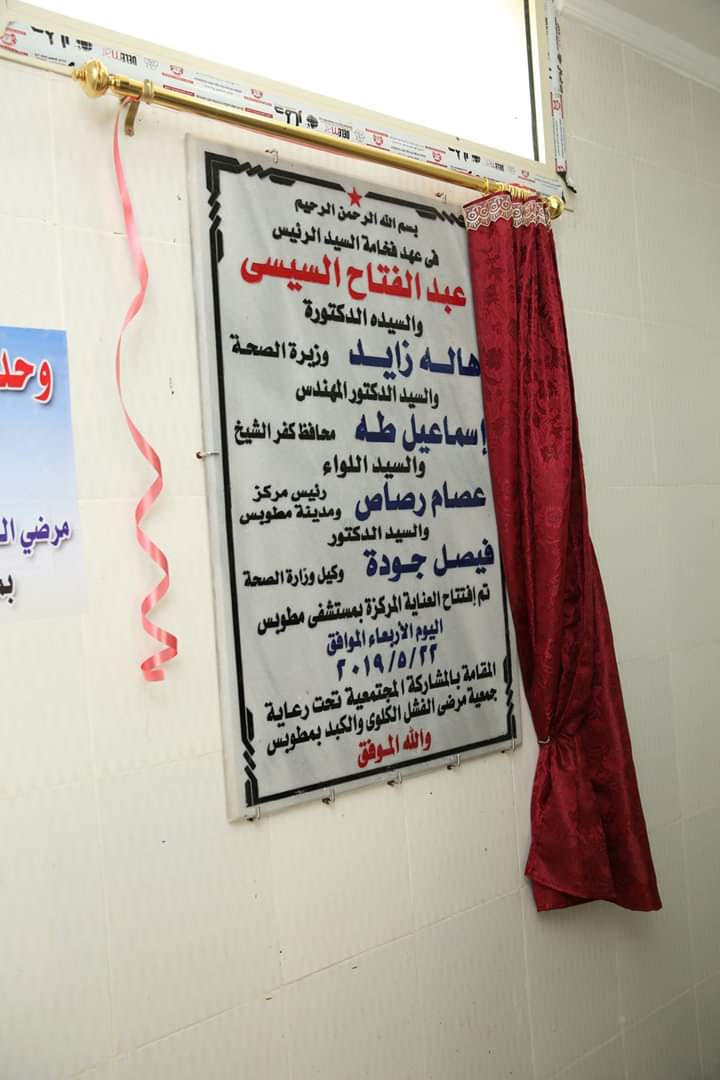 بسم الله الرحمن الرحيم
فى عهد فخامة السيد الرئيس
عبد الفتاح السيسى
والسيده الدكتورة
هاله زايد وزيرة الصحة
والسيد الدكتور المهندس
إسماعيل طه محافظ كفر الشيخ
والسيد اللواء
عصام رصاص رئيس مركز
ومدينة مطوبس
والسيد الدكتور
فيصل جودة وكيل وزارة الصحة
تم إفتتاح العناية المركزة بمستشفى مطوبس
اليوم الأربعاء الموافق
٢٠١٩/٥/٢٢
المقامة بالمشاركة المجتمعية تحت رعاية
جمعية مرضى الفشل الكلوى والكبد بمطوبس
والله الموفق
وحد
مرضي ال
بم